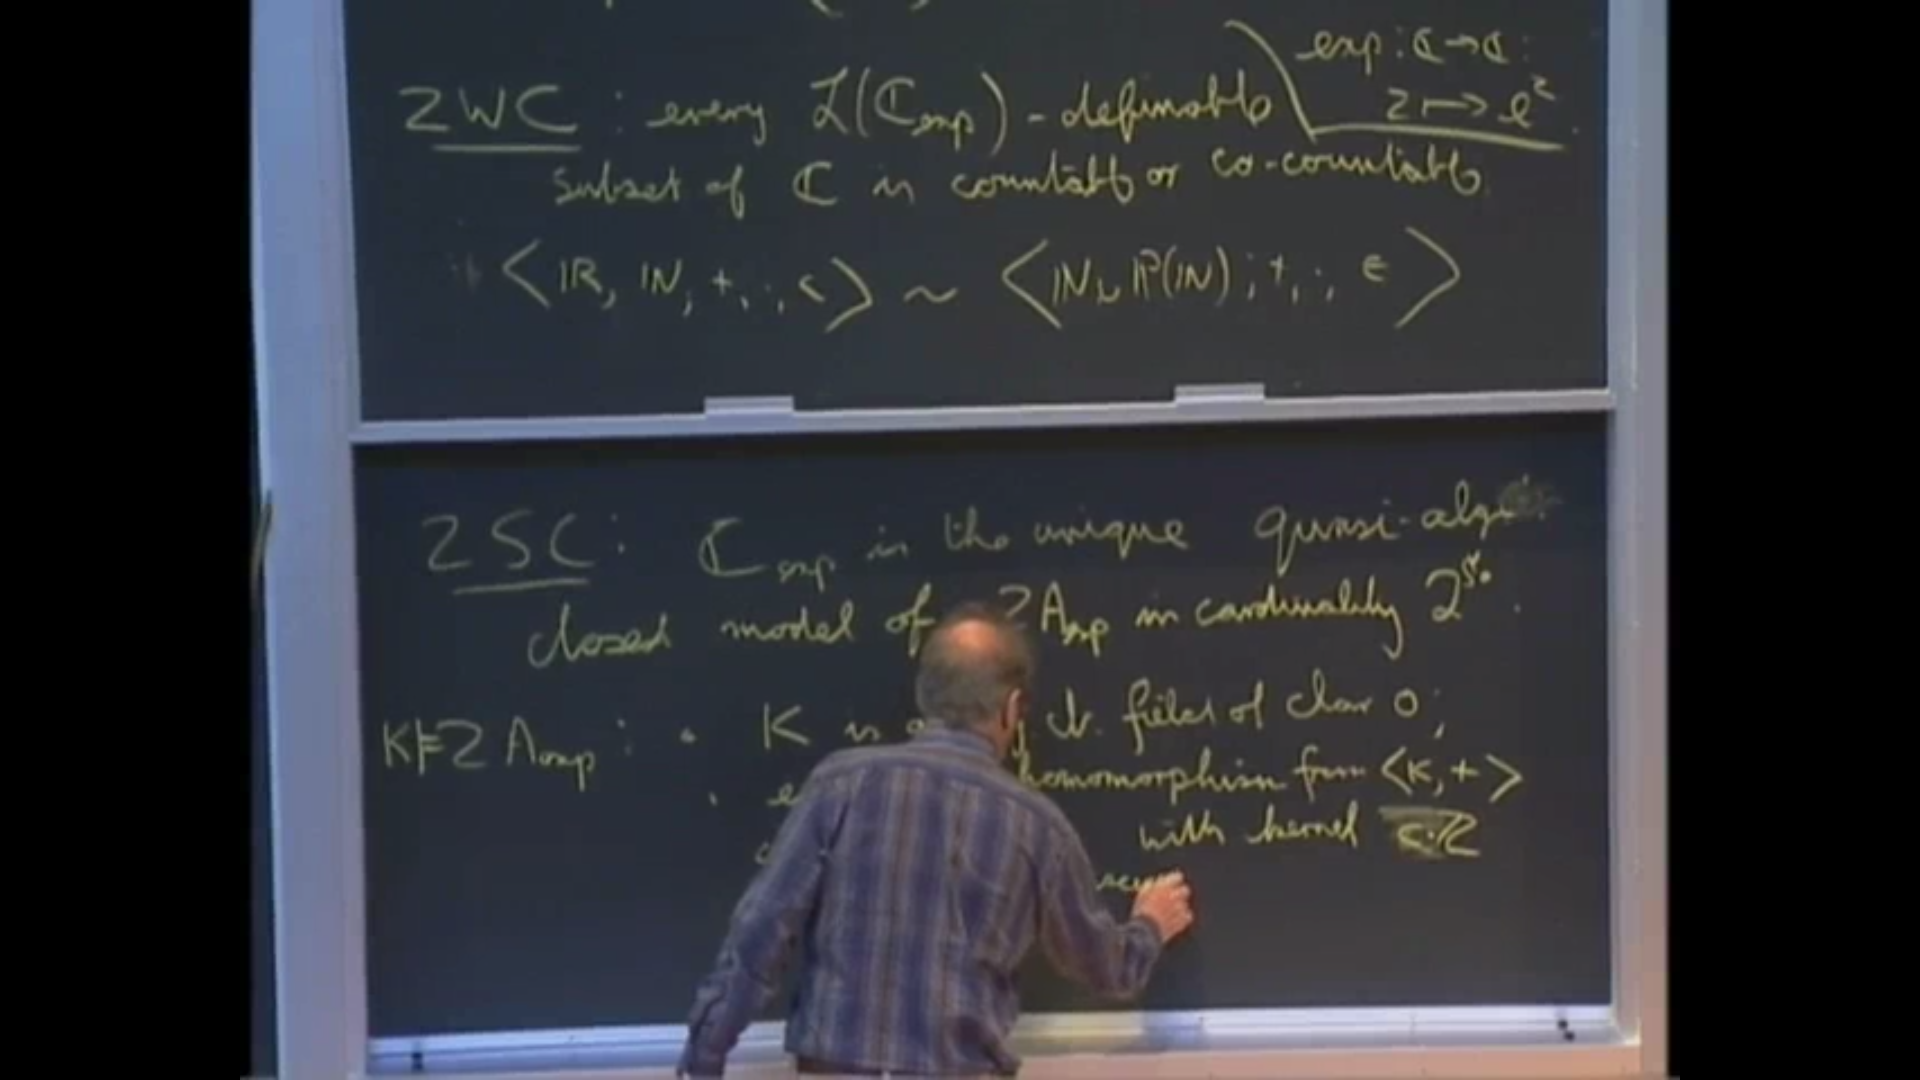 exp : ℂ → ℂ :
z ↦ e^z .
ZWC : every ℒ(ℂ_exp) - definable
subset of ℂ is countable or co-countable.
⟨ ℝ, ℕ, +, ·, < ⟩ ~ ⟨ ℕ, ℙ(ℕ) ; +, · ; ∈ ⟩
ZSC : ℂ_exp is the unique quasi-alg.
closed model of ZA_exp in cardinality 2^ℵ₀ .
K ⊨ ZA_exp : • K is cl. field of char 0 ;
• homomorphism from ⟨K, +⟩
with kernel ℤ